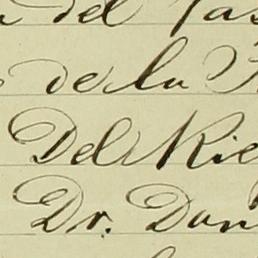 del
de la
Del Rie
Dr. Dan